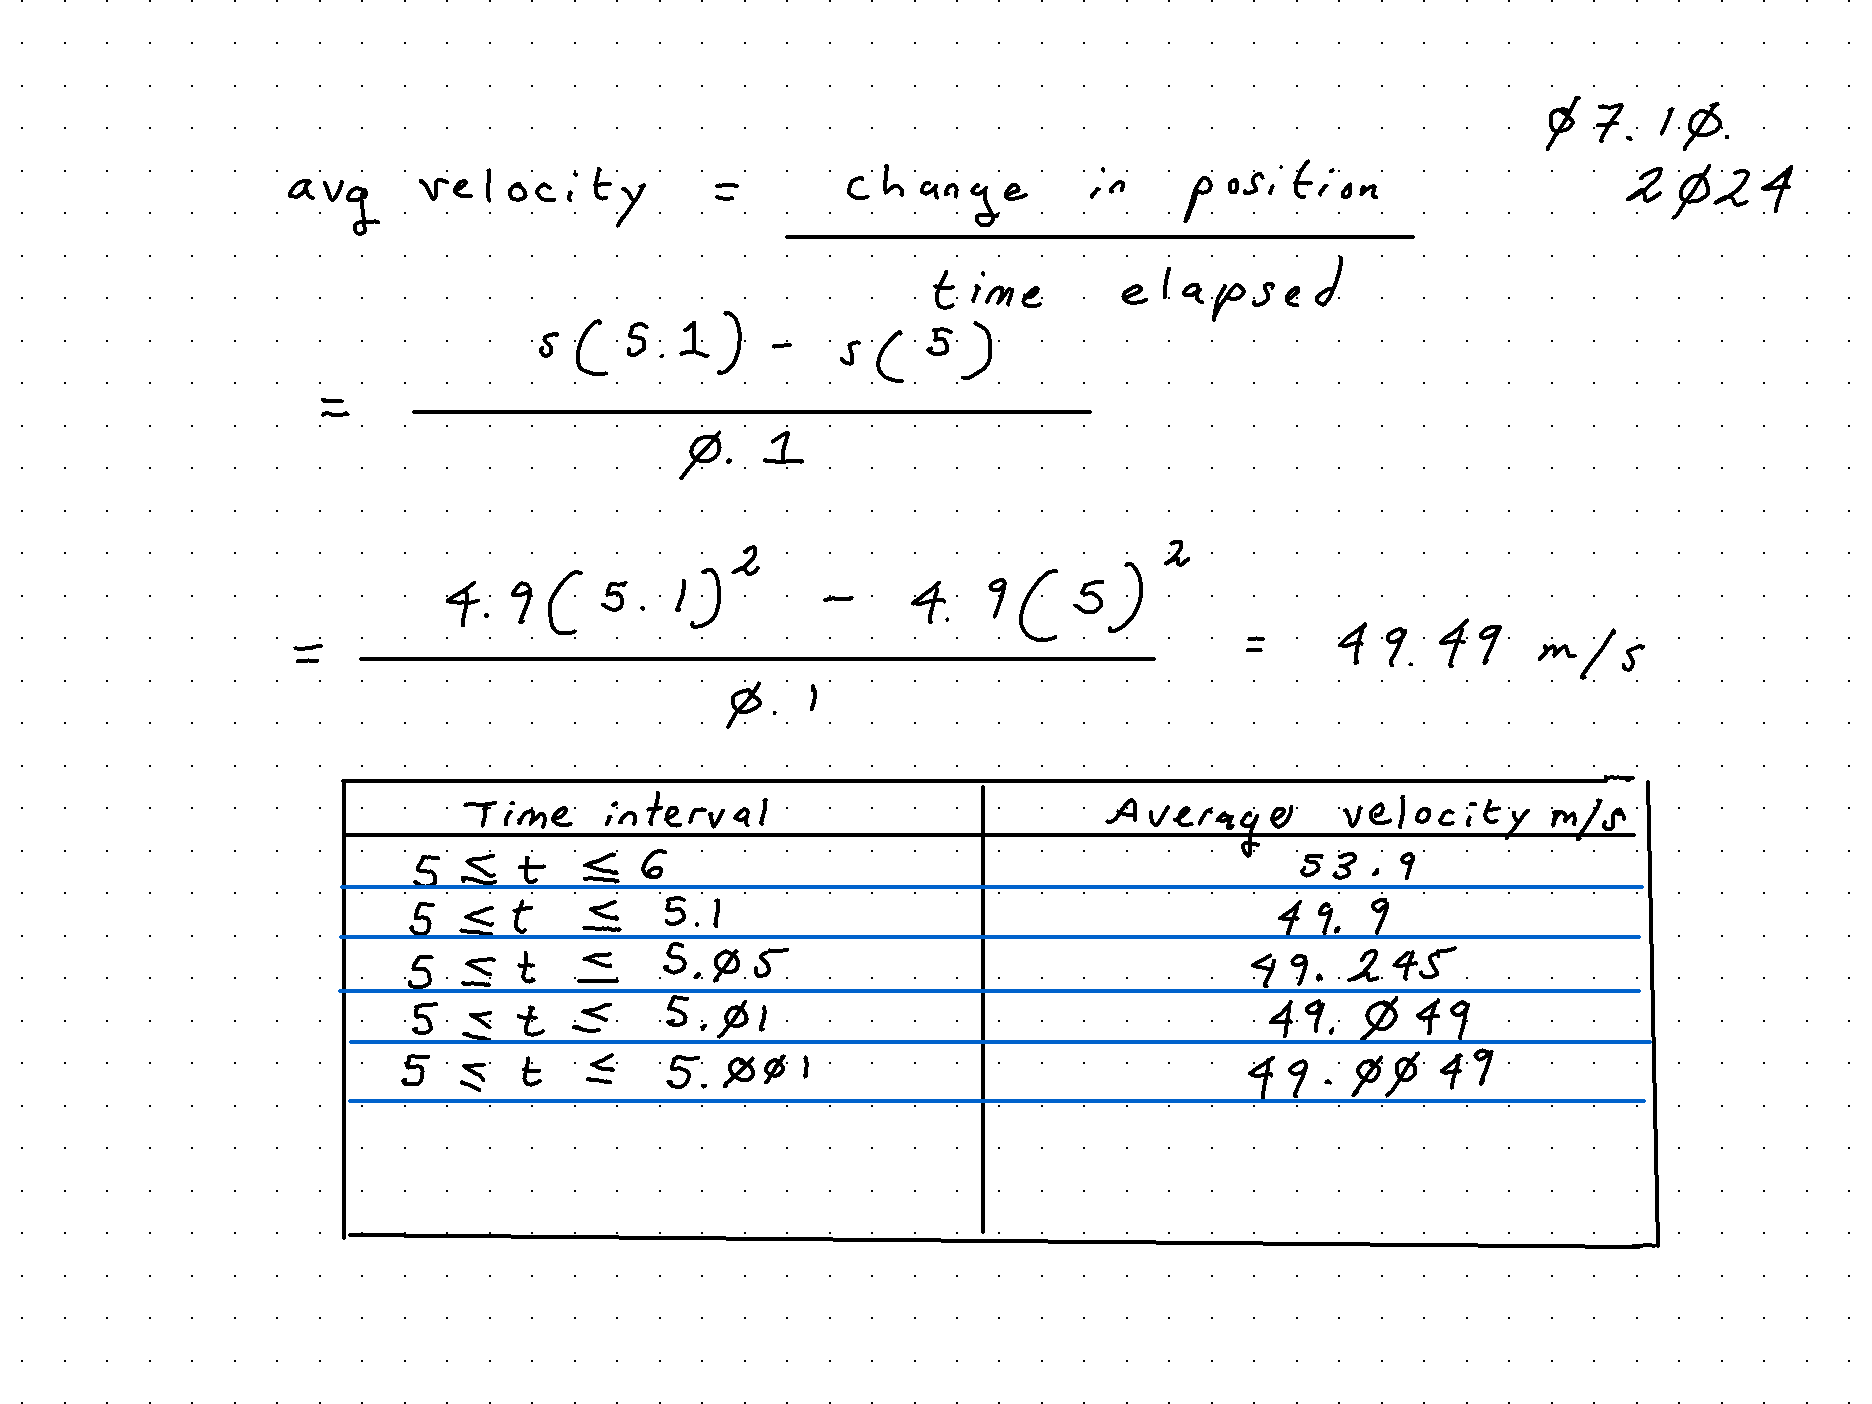 ø7.1ø.
2ø24
avg velocity = change in position
time elapsed
s(5.1) - s(5)
=
ø.1
4.9(5.1)² - 4.9(5)²
= = 49.49 m/s
ø.1
Time interval Average velocity m/s
5 ≤ t ≤ 6 53.9
5 ≤ t ≤ 5.1 49.9
5 ≤ t ≤ 5.ø5 49.245
5 ≤ t ≤ 5.ø1 49.ø49
5 ≤ t ≤ 5.øø1 49.øø49